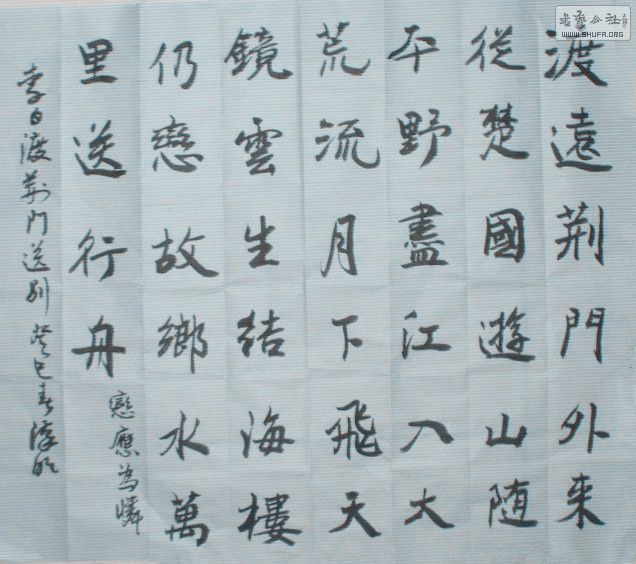 渡遠荆門外來
從楚國遊山随
平野盡江入大
荒流月下飛天
鏡雲生結海樓
仍戀故鄉水萬
里送行舟
戀應為憐
李白渡荆門送别癸巳春
書藝公社
WWW.SHUFA.ORG